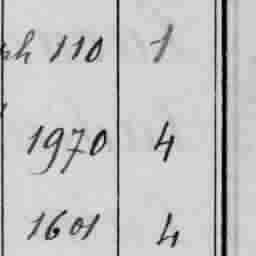 ph 110 1
1970 4
1601 4